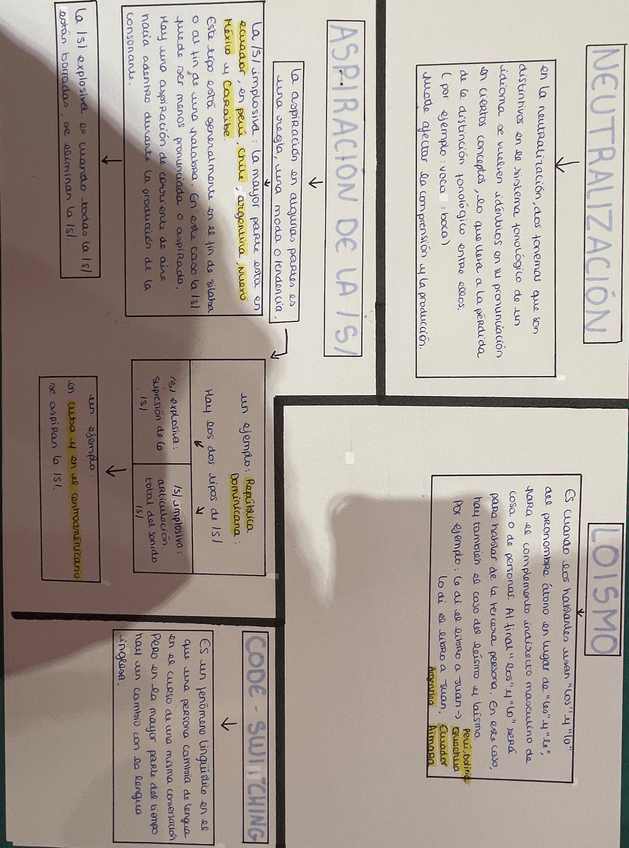 NEUTRALIZACIÓN
en la neutralización, dos fonemas que son
distintivos en el sistema fonológico de un
idioma se vuelven idénticos en su pronunciación
en ciertos conceptos, lo que lleva a la pérdida
de la distinción fonológico entre ellos.
(por ejemplo: voca : boca)
Puede afectar la comprensión y la producción.
LOISMO
Es cuando los hablantes usan "los" y "lo"
del pronombre átono en lugar de "les" y "le",
para el complemento indirecto masculino de
cosa o de personas. Al final "los" y "lo" será
para hablar de la tercera persona. En este caso,
hay también el caso del leísmo y laísmo
Por ejemplo: la di el libro a Juan →
lo di el libro a Juan.
Perú, Bolivia
Quechua
Ecuador
Aimara
Argentina
ASPIRACIÓN DE LA /S/
la aspiración en algunas partes es
una regla, una moda o tendencia.
la /s/ implosiva : la mayor parte está en
ecuador, en perú, Chile, argentina, Nuevo
México y Caraibe.
Este tipo está generalmente en el fin de sílaba
o al fin de una palabra. En este caso la /s/
puede ser menos pronunciada o aspirada.
Hay una aspiración de corriente de aire
hacia adentro durante la producción de la
consonante.
la /s/ explosiva es cuando todas la /s/
están borradas, se eliminan la /s/.
un ejemplo : República
Dominicana :
Hay los dos tipos de /s/
/s/ explosiva :
supresión de la
/s/
/s/ implosiva :
articulación
total del sonido
/s/
un ejemplo :
en cuba y en el centroaméricano
se aspiran la /s/.
CODE - SWITCHING
Es un fenómeno lingüístico en el
que una persona cambia de lengua
en el curso de una misma conversación
Pero en la mayor parte del tiempo
hay un cambio con la lengua
inglesa.